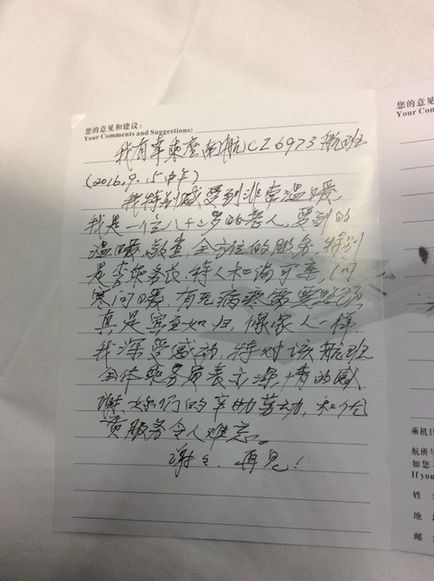 您的意见和建议:
Your Comments and Suggestions:
我有幸乘坐南航CZ6973航班
(2016.9.15中午)
我特别感受到非常温暖
我是一位八十二岁的老人,受到的
温暖 全方位的服务,特别
是李乘务长,待人和 可亲,问
寒问暖,有无病 需要照顾
真是宾至如归,像家人一样
我深受感动,特对该航班
全体乘务员表示深情的感
谢,她们的辛勤劳动,和优
质服务令人难忘。
谢谢,再见!
您的意见
Your Com
乘机日
航班号
如您
If you
姓
地
邮